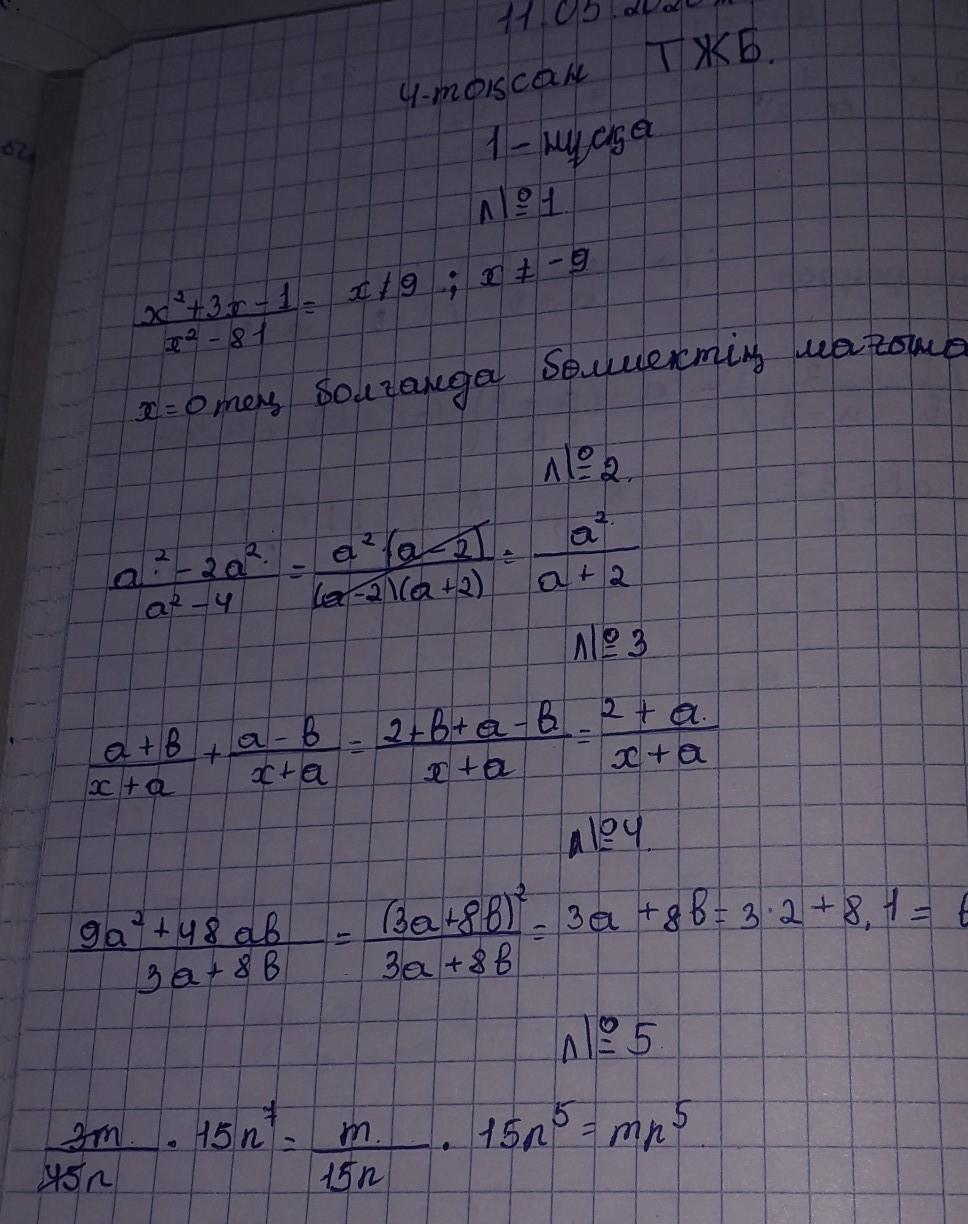 11.05.2020
4-тоқсан ТЖБ.
1-нұсқа
№1.
x²+3x-1/x²-81 = x≠9 ; x≠-9
x=0 тең болғанда бөлшектің мағына
№2.
a²-2a²/a²-4 = a²(a-2)/(a-2)(a+2) = a²/a+2
№3
a+b/x+a + a-b/x+a = 2+b+a-b/x+a = 2+a/x+a
№4.
9a²+48ab/3a+8b = (3a+8b)²/3a+8b = 3a+8b = 3·2+8,1 =
№5.
3m/45n · 15n⁷ = m/15n · 15n⁵ = mn⁵